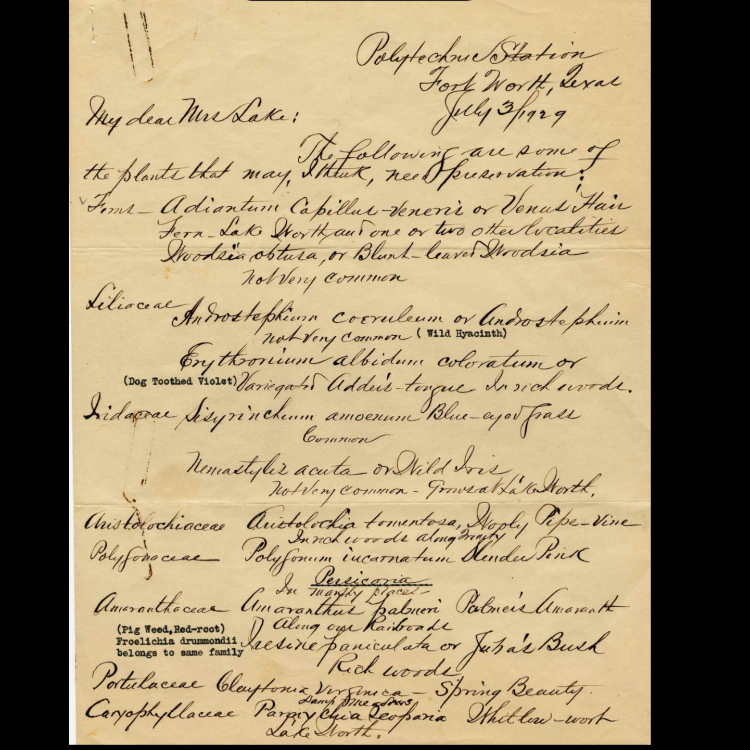 Polytechnic Station
Fort Worth, Texas
July 3/1929
My dear Mrs Lake:
The following are some of
the plants that may, I think, need preservation:
Ferns - Adiantum Capillus-veneris or Venus' Hair
Fern - Lake Worth and one or two other localities
Woodsia obtusa, or Blunt-leaved Woodsia
not very common
Liliaceae Androstephium coeruleum or Androstephium
not very common (Wild Hyacinth)
Erythronium albidum coloratum or
(Dog Toothed Violet) Variegated Adder's-tongue In rich woods.
Iridaceae Sisyrinchium amoenum Blue-eyed grass
Common
Nemastylis acuta or Wild Iris
Not very common - Grows at Lake Worth.
Aristolochiaceae Aristolochia tomentosa, Wooly Pipe-Vine
In rich woods along Trinity
Polygonaceae Polygonum incarnatum Slender Pink
Persicaria
In marshy places-
Amaranthaceae Amaranthus palmeri Palmer's Amaranth
Along our Railroads
(Pig Weed, Red-root)
Froelichia drummondii
belongs to same family
Iresine paniculata or Juba's Bush
Rich woods
Portulaceae Claytonia Virginica - Spring Beauty.
damp meadows
Caryophyllaceae Paronychia Whitlow-wort
Lake Worth.